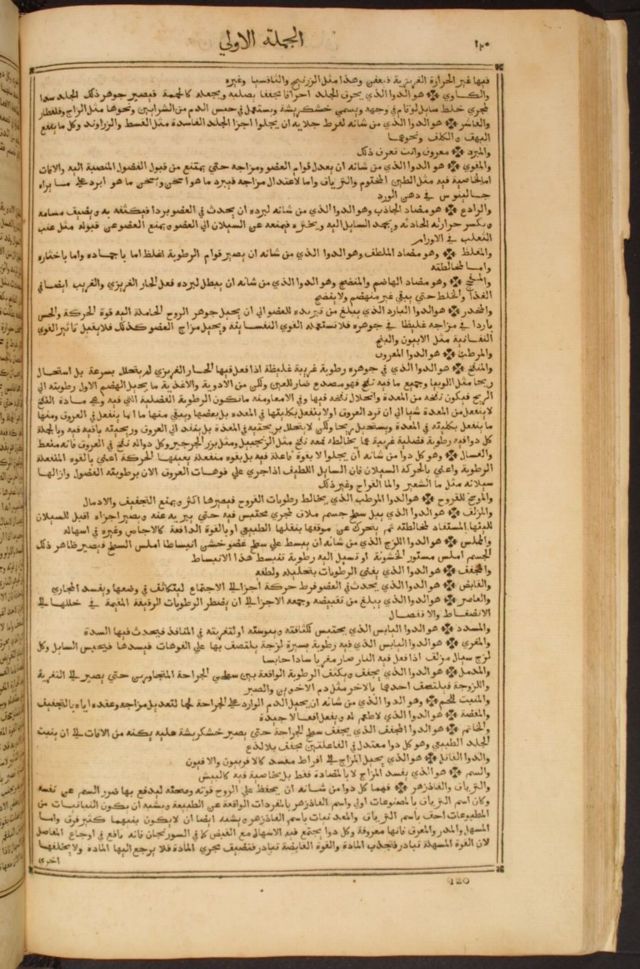 ١٢٠ الجملة الاولي
فيها غير الحرارة الغريزية فيعفن وهذا مثل الزرنيخ والثافسيا وغيره
والكاوي ✠ هو الدوا الذي يحرق الجلد احراقا يجففا يصلبه ويجعله كالحممة فيصير جوهر ذلك الجلد سدا
لمجري خلط سايل لو قام في وجهه ويسمي خشكريشة ويستعمل في حبس الدم من الشرايين ونحوها مثل الزاج والقلقطار
والقاشر ✠ هو الدوا الذي من شانه لفرط جلايه ان يجلوا اجزا الجلد الفاسدة مثل القسط والزراوند وكل ما ينفع
البهق والكلف ونحوها
والمبرد ✠ معروف وانت تعرف ذلك
والمقوي ✠ هو الدوا الذي من شانه ان يعدل قوام العضو ومزاجه حتي يمتنع من قبول الفضول المنصبة اليه والافات
اما لخاصية فيه مثل الطين المختوم والترياق واما لاعتدال مزاجه فيبرد ما هو اسخن ويسخن ما هو ابرد علي ما يراه
جالينوس في دهن الورد
والرادع ✠ هو مضاد الجاذب وهو الدوا الذي من شانه لبرده ان يحدث في العضو بردا فيكثفه به ويضيف مسامه
ويكسر حرارته الجاذبه ويجمد السايل اليه ويخثره فيمنعه عن السيلان الي العضو ويمنع العضو عن قبوله مثل عنب
الثعلب في الاورام
والمغلظ ✠ هو مضاد الملطف وهو الدوا الذي من شانه ان يصير قوام الرطوبة اغلظ اما باجماده واما باخثاره
واما لمخالطته
والمفجج ✠ وهو مضاد الهاضم والمنضج وهو الدوا الذي من شانه ان يبطل لبرده فعل الحار الغريزي والغريب ايضا في
الغذا والخلط حتي يبقي غير منهضم ولا نضيج
والمخدر ✠ هو الدوا البارد الذي يبلغ من تبريده للعضو الي ان يحيل جوهر الروح الحاملة اليه قوة الحركة والحس
باردا في مزاجه غليظا في جوهره فلا تستعمله القوي النفسانية ويحيل مزاج العضو كذلك فلا يقبل تاثير القوي
النفسانية مثل الافيون والبنج
والمرطب ✠ هو الدوا المعروف
والمنفخ ✠ هو الدوا الذي في جوهره رطوبة غريبة غليظة اذا فعل فيها الحار الغريزي لم يتحلل بسرعة بل استحال
ريحا مثل اللوبيا وجميع ما فيه نفخ فهو مصدع ضار للعين ولكن من الادوية والاغذية ما يحيل الهضم الاول رطوبته الي
الريح فيكون نفخه في المعدة وانحلال نفخه فيها وفي الامعا ومنه ما تكون الرطوبة الفضلية التي فيه وهي مادة النفخ
لا ينفعل من المعدة شيا الي ان ترد العروق او لا ينفعل بكليتها في المعده بل بعضها ويبقي منها ما انما ينفعل في العروق ومنها
ما ينفعل بكليته في المعدة ويستحيل ريحا ولكن لا يتحلل برمته في المعدة بل ينفذ الي العروق وريحيته باقيه فيه وبالجملة
كل دوا فيه رطوبة فضلية غريبة عما يخالطه فمعه نفخ مثل الزنجبيل ومثل بزر الجرجير وكل دوا له نفخ في العروق فانه منعظ
والغسال ✠ هو كل دوا من شانه ان يجلوا لا بقوة فاعلة فيه بل بقوة منفعلة يعينها الحركة اعني بالقوة المنفعلة
الرطوبة واعني بالحركة السيلان فان السايل اللطيف اذا جري علي فوهات العروق الان برطوبته الفضول وازالها
سيلانه مثل ما الشعير والما القراح وغير ذلك
والموسخ للقروح ✠ هو الدوا المرطب الذي يخالط رطوبات القروح فيصيرها اكثر ويمنع التجفيف والادمال
والمزلق ✠ هو الدوا الذي يبل سطح جسم ملاق لمجري محتبس فيه حتي يبريه عنه ويصير اجزاه اقبل للسيلان
للينها المستفاد لمخالطته ثم يتحرك عن موقعها بثقلها الطبيعي او بالقوة الدافعة كالاجاص وغيره في اسهاله
والمملس ✠ هو الدوا اللزج الذي من شانه ان ينبسط علي سطح عضو خشن انبساطا املس السطح فيصير ظاهر ذلك
الجسم املس مستور الخشونة او تسيل اليه رطوبة تنبسط هذا الانبساط
والمجفف ✠ هو الدوا الذي يفني الرطوبات بتحليله ولطفه
والقابض ✠ هو الدوا الذي يحدث في العضو فرط حركة اجزا الي الاجتماع ليتكاثف في وضعها وينسد المجاري
والعاصر ✠ هو الدوا الذي يبلغ من تقبيضه وجمعه الاجزا الي ان يضطر الرطوبات الرقيقة المقيمة في خللها الي
الانضغاط والانفصال
والمسدد ✠ هو الدوا اليابس الذي يحتبس لكثافته ويبوسته او لتغريته في المنافذ فيحدث فيها السدة
والمغري ✠ هو الدوا اليابس الذي فيه رطوبة يسيرة لزجة يلتصق بها علي الفوهات فيسدها فيحبس السايل وكل
لزج سيال مزلق اذا فعل فيه النار صار مغريا سادا حابسا
والمدمل ✠ هو الدوا الذي يجفف ويكثف الرطوبة الواقعة بين سطحي الجراحة المتجاورين حتي يصير الي التغرية
واللزوجة فيلتصق احدهما بالاخر مثل دم الاخوين والصبر
والمنبت للحم ✠ هو الدوا الذي من شانه ان يحيل الدم الوارد علي الجراحة لحما لتعديل مزاجه وعقده اياه بالتجفيف
والمفضة ✠ هو الدوا الذي لاطعم له ويفعل افعالا جيدة
والخاتم ✠ هو الدوا المجفف الذي يجفف سطح الجراحة حتي يصير خشكريشة عليه يكنه من الافات الي ان ينبت
الجلد الطبيعي وهو كل دوا معتدل في الفاعلتين مجفف بلا لذع
والدوا القاتل ✠ هو الذي يحيل المزاج الي افراط مفسد كالافربيون والافيون
والسم ✠ هو الذي يفسد المزاج لا بالمضادة فقط بل بخاصية فيه كالبيش
والترياق والفادزهر ✠ فهما كل دوا من شانه ان يحفظ علي الروح قوته وصحته ليدفع بها ضرر السم عن نفسه
وكان اسم الترياق بالمصنوعات اولي واسم الفادزهر بالمفردات الواقعة عن الطبيعة ويشبه ان يكون النباتيات من
المطبوعات احق باسم الترياق والمعدنيات باسم الفادزهر ويشبه ايضا ان لا يكون بينهما كثير فرق واما
المسهل والمدر والمعرق فانها معروفة وكل دوا يجتمع فيه الاسهال مع القبض كما في السورنجان فانه نافع في اوجاع المفاصل
لان القوة المسهلة تبادر فتجذب المادة والقوة القابضة تبادر فتضيق مجري المادة فلا يرجع اليها المادة ولا يخلفها
اخري
120